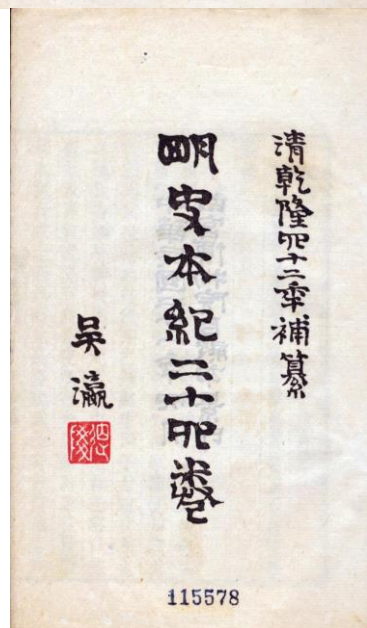 清乾隆四十二年補纂
明史本紀二十四卷
吳瀛
115578